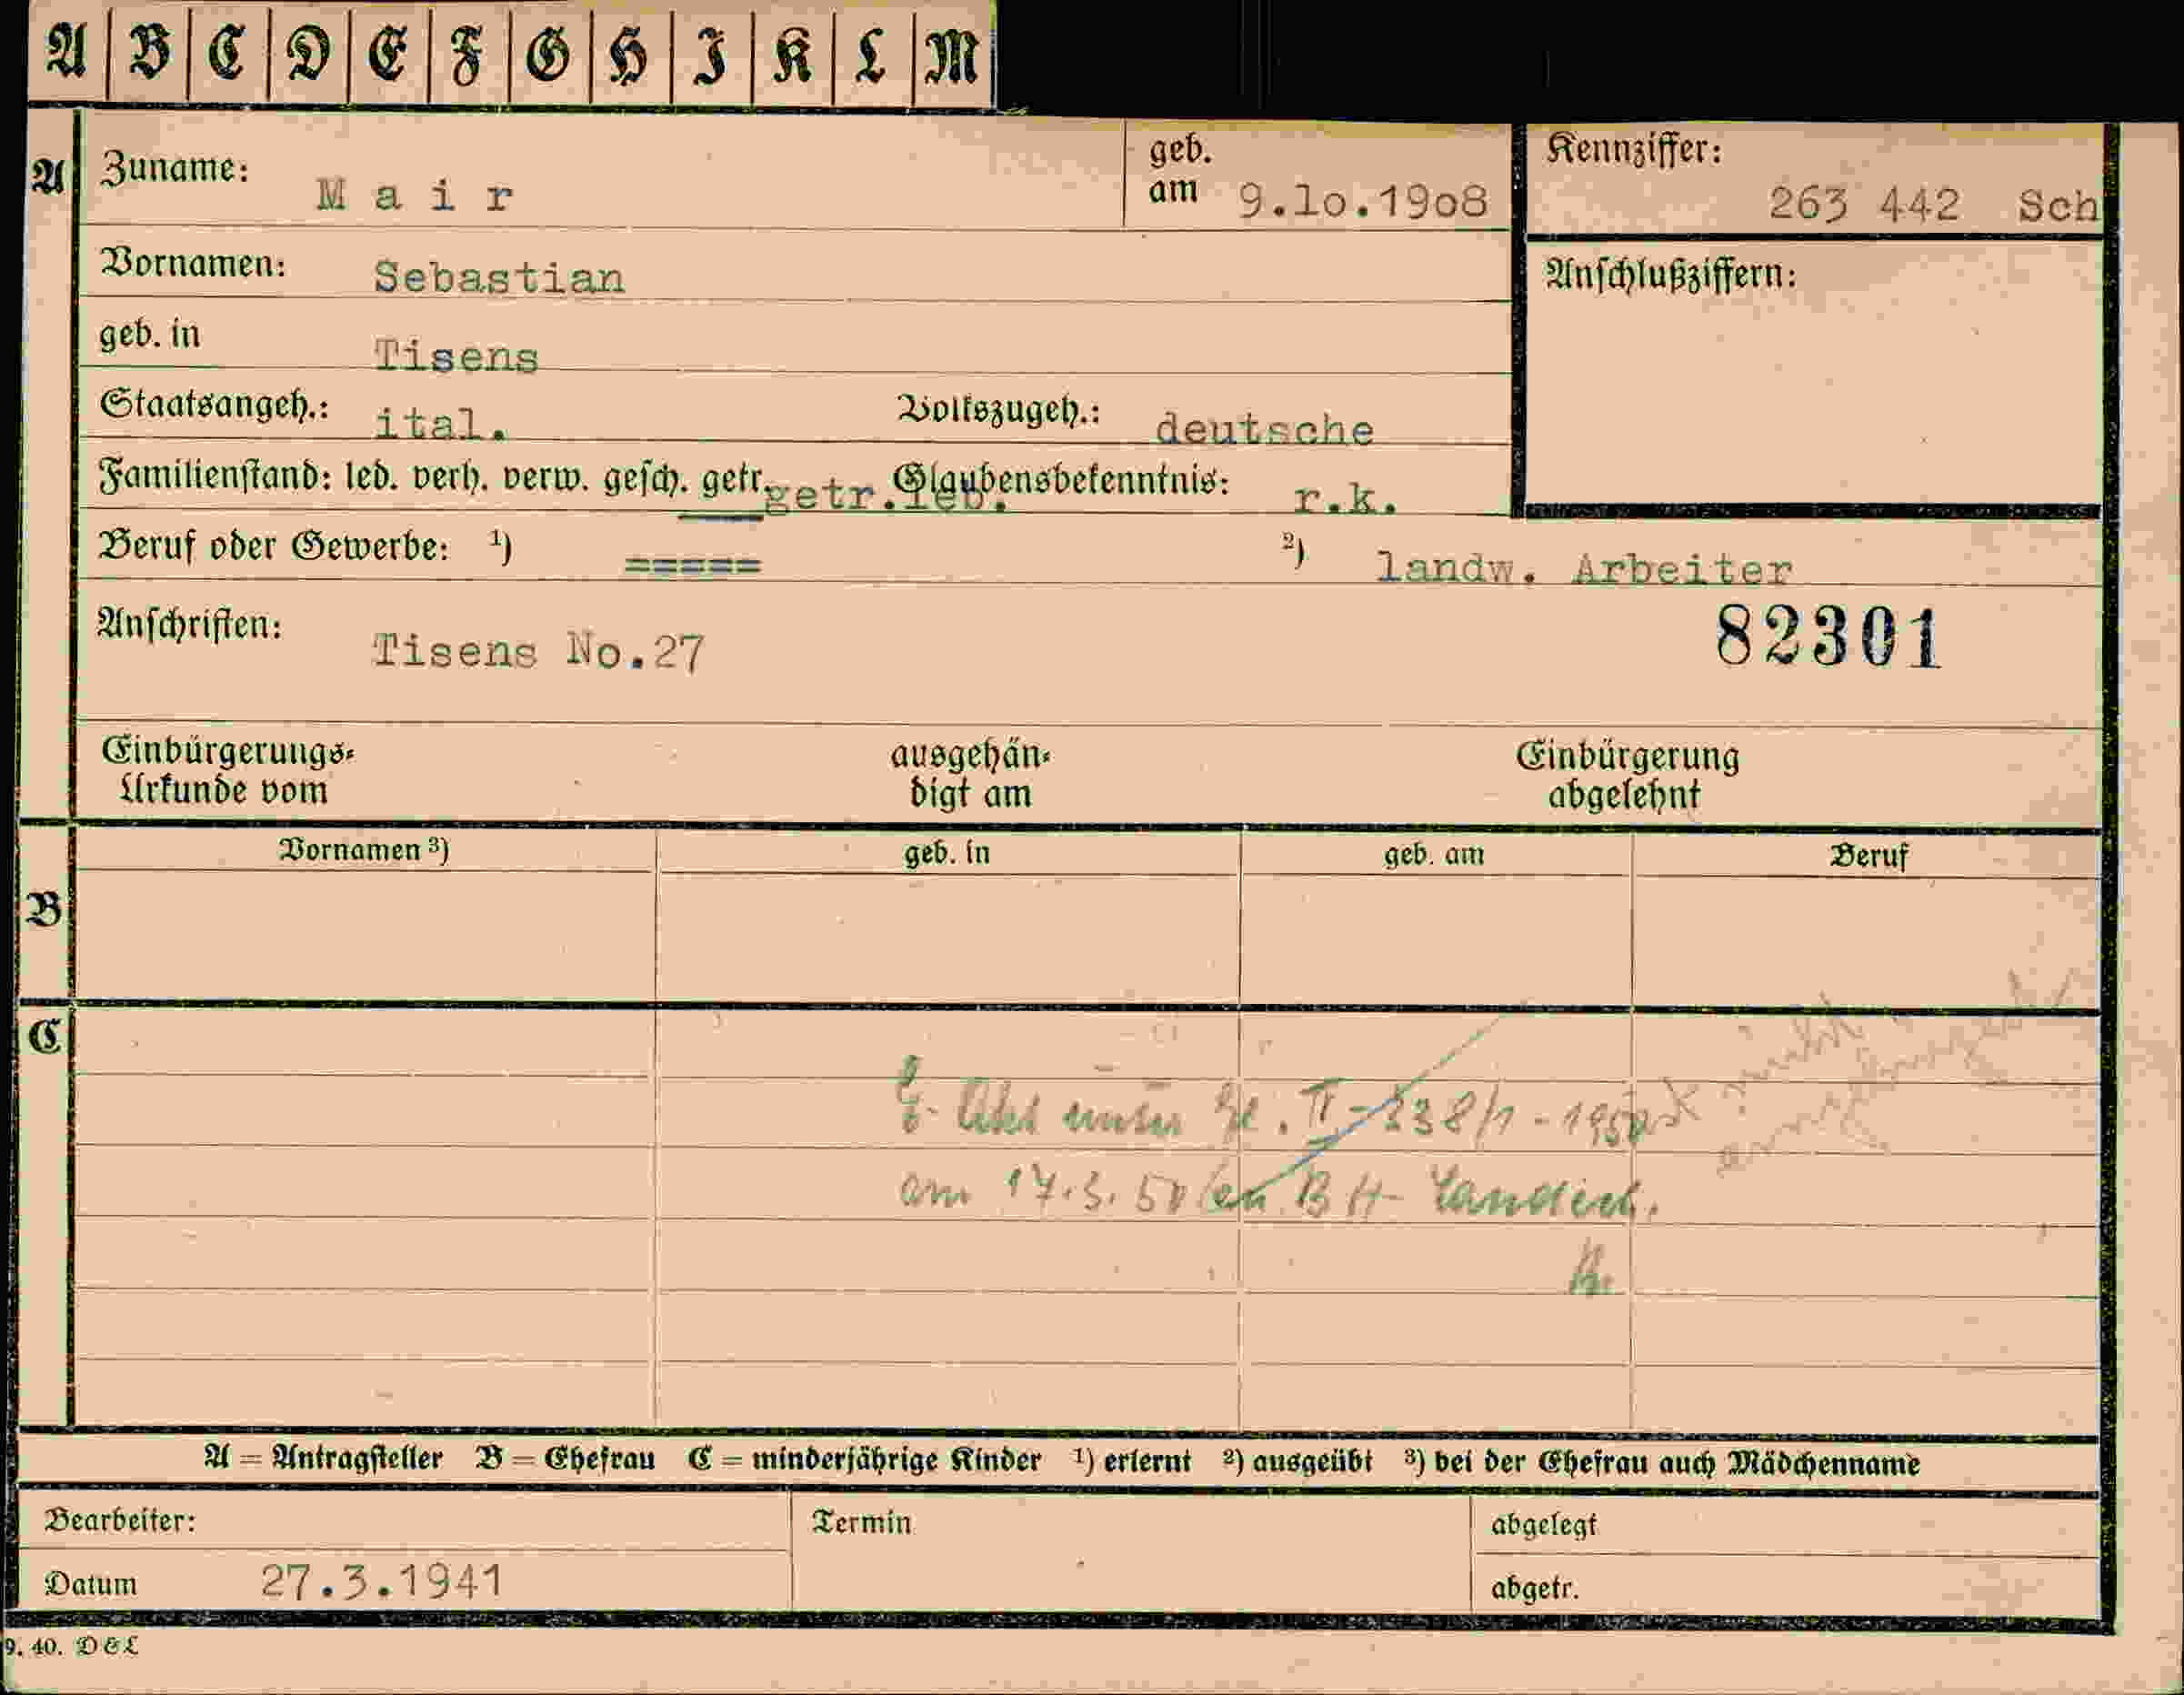 A B C D E F G H I K L M
A Zuname: M a i r geb. am 9.lo.19o8 Kennziffer: 263 442 Sch
Vornamen: Sebastian Anschlußziffern:
geb. in Tisens
Staatsangeh.: ital. Volkszugeh.: deutsche
Familienstand: led. verh. verw. gesch. getr. getr.leb. Glaubensbekenntnis: r.k.
Beruf oder Gewerbe: ¹) ===== ²) landw. Arbeiter
Anschriften: Tisens No.27 82301
Einbürgerungs- ausgehän- Einbürgerung
Urkunde vom digt am abgelehnt
B Vornamen ³) geb. in geb. am Beruf
C
Akt unter II-338/1-1950
am 17.3.50 an BH-Landeck.
A = Antragsteller B = Ehefrau C = minderjährige Kinder ¹) erlernt ²) ausgeübt ³) bei der Ehefrau auch Mädchenname
Bearbeiter: Termin abgelegt
Datum 27.3.1941 abgetr.
9. 40. D & L